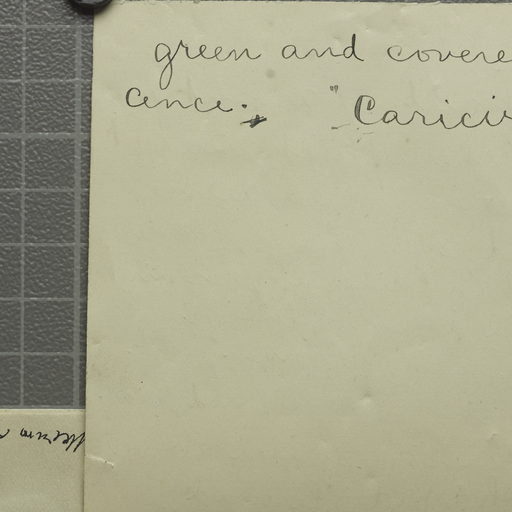 green and covere
ance. "Carici